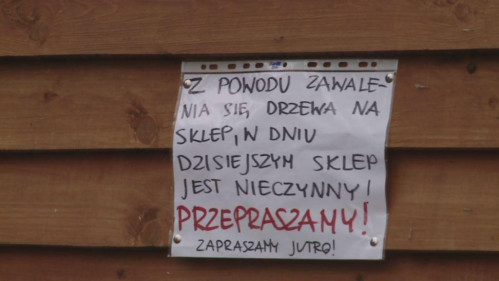 Z POWODU ZAWALE-
NIA SIĘ, DRZEWA NA
SKLEP, W DNIU
DZISIEJSZYM SKLEP
JEST NIECZYNNY!
PRZEPRASZAMY!
ZAPRASZAMY JUTRO!